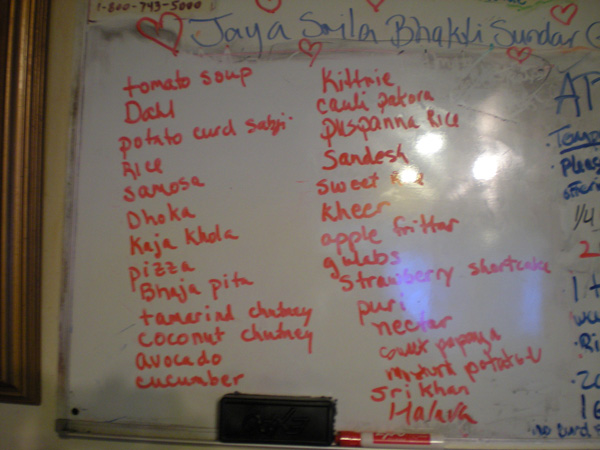 1-800-743-5000
Jaya Srila Bhakti Sundar
tomato soup
Dahl
potato curd sabji
Rice
samosa
Dhoka
Kaja khola
pizza
Bhaja pita
tamarind chutney
coconut chutney
avocado
cucumber
Kittrie
cauli pakora
puspanna Rice
Sandesh
sweet
kheer
apple frittar
gulabs
strawberry shortcake
puri
nectar
papaya
srikhan
Halava
AP
Temp
Pleas
offerin
1/4
2
1 t
Ri
20
no curd